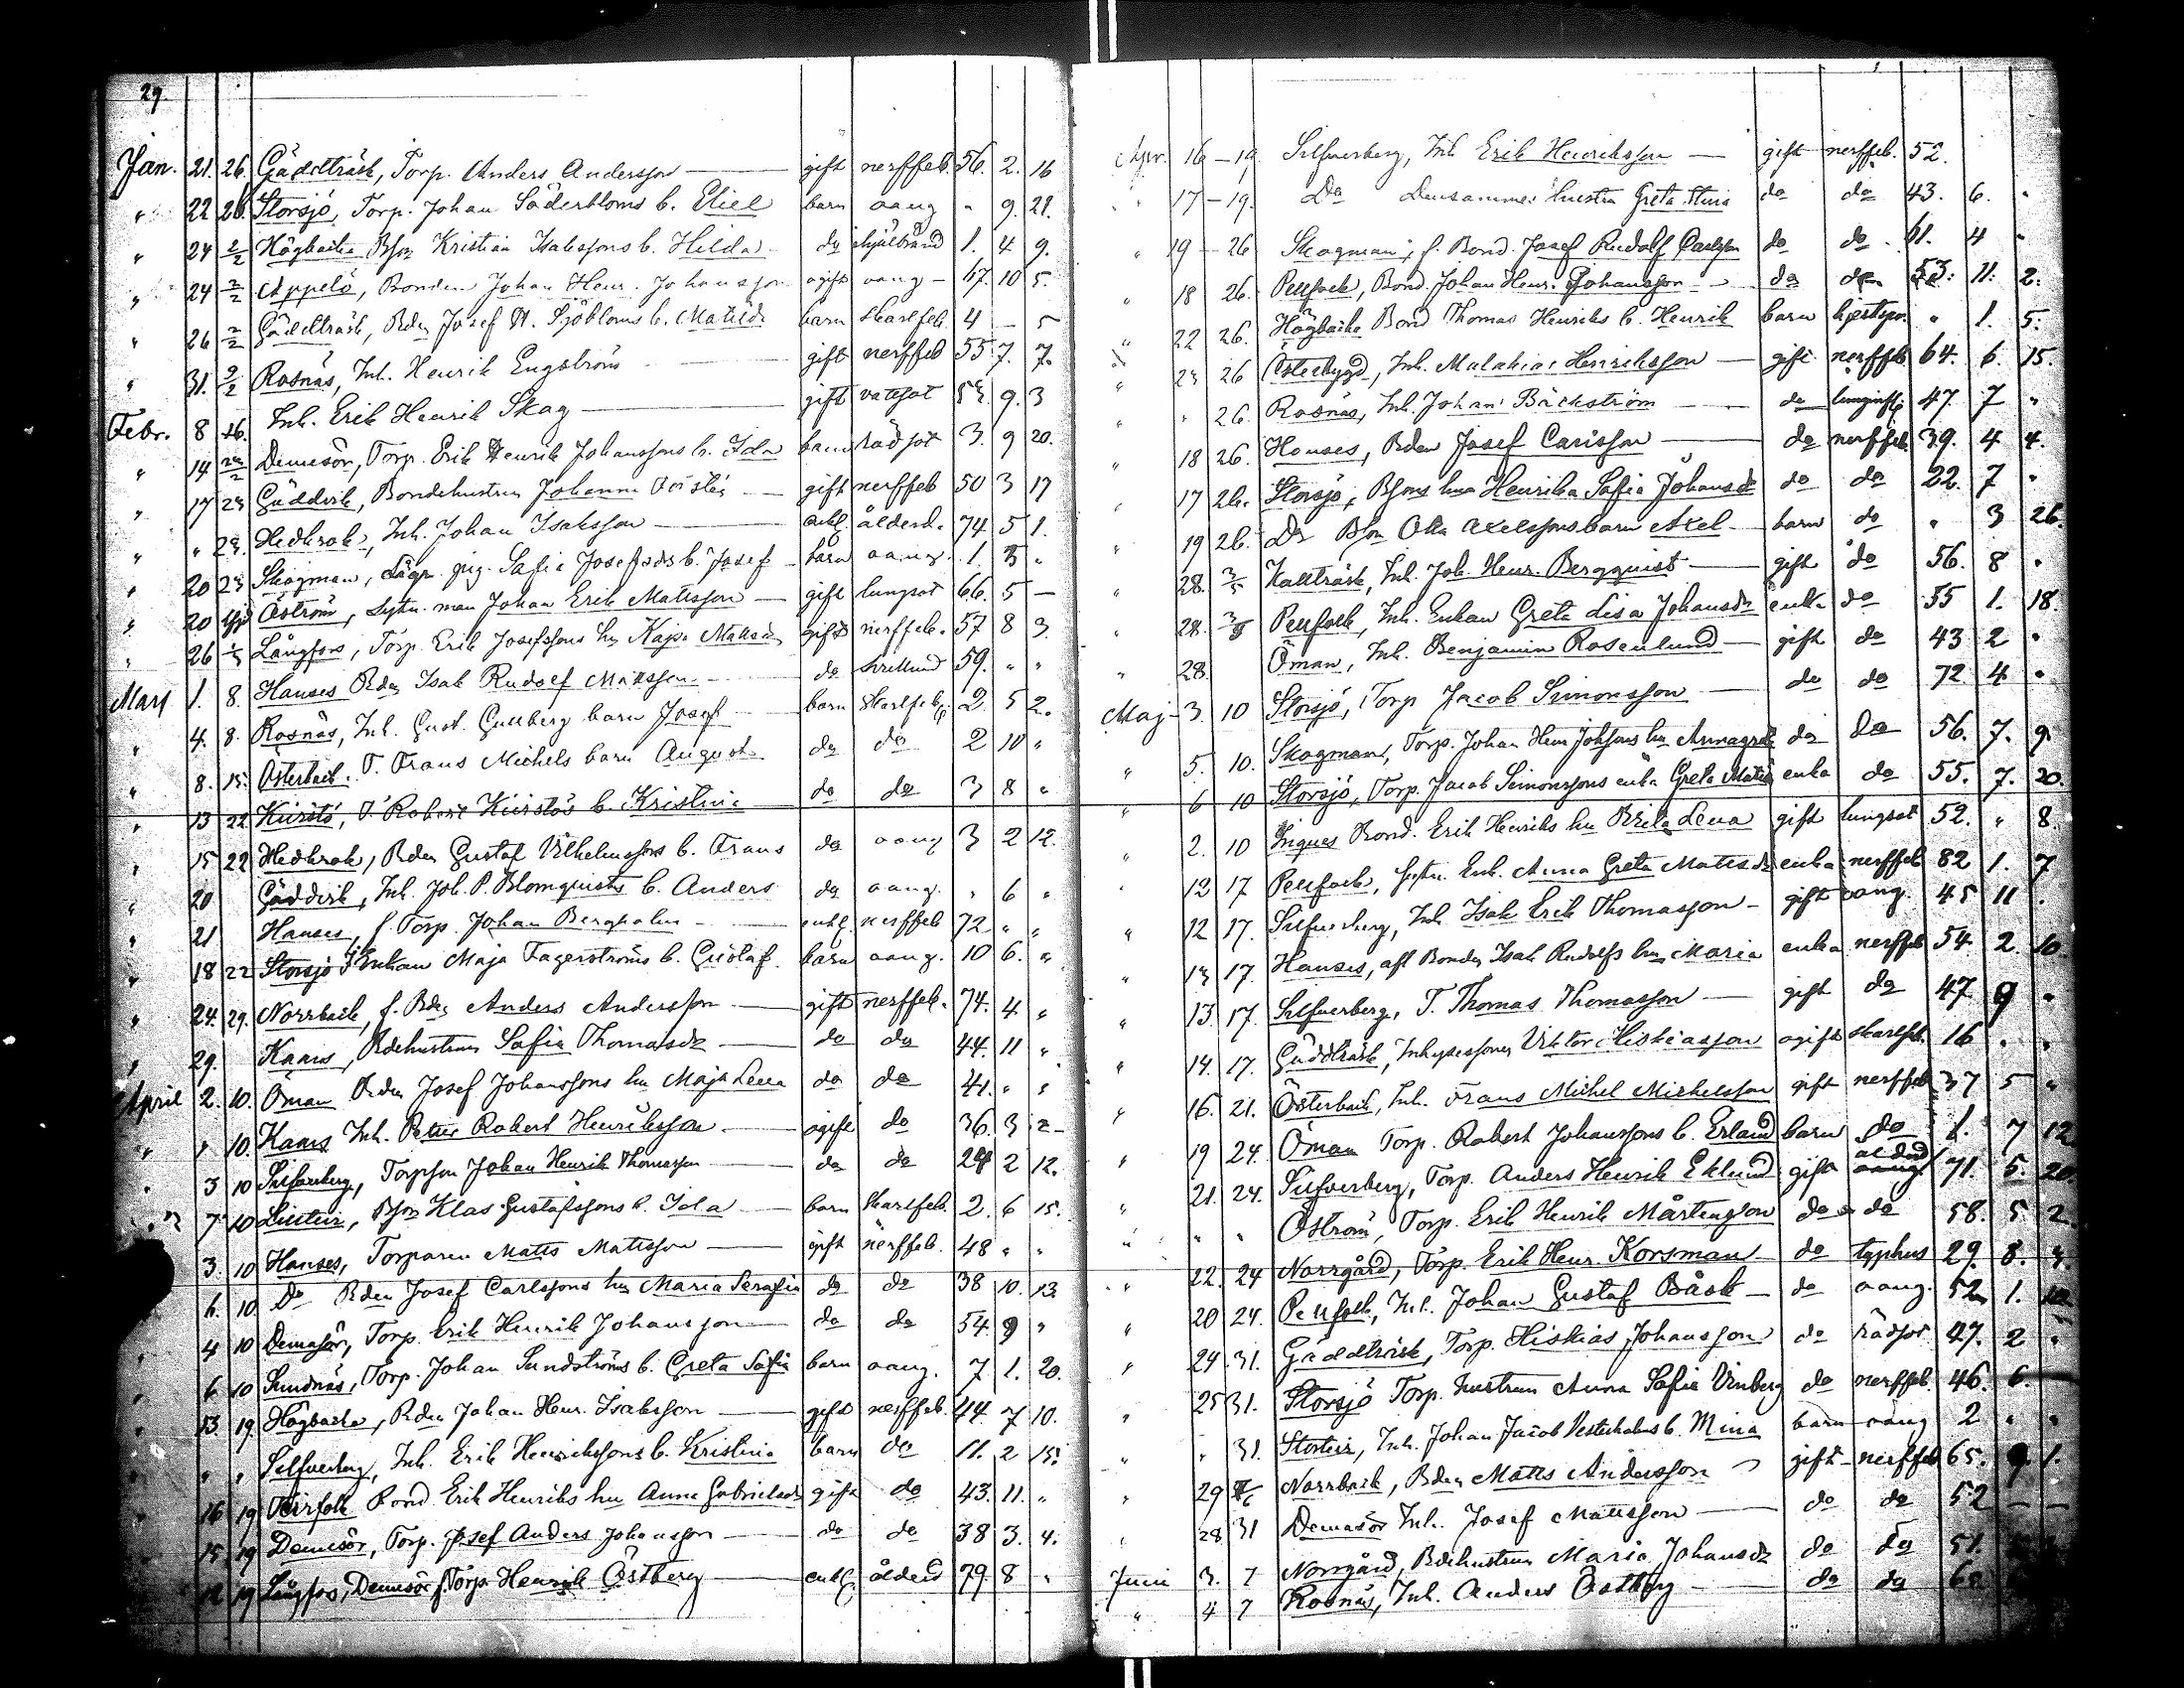 29.
Jan. 21. 26. Gäddträsk, Torp. Anders Andersson — gift nerffeb. 56. 2. 16
" 22 26. Storsjö, Torp. Johan Söderbloms b. Eliel barn oang " 9. 21.
" 24 2/2 Högbacka Bson Kristian Isakssons b. Hilda do 1. 4 9.
" 24 2/2 Appelö, Bonden Johan Henr. Johansson ogift oang — 67. 10 5.
" 26 2/2 Gäddträsk, Bden Josef A. Sjöbloms b. Matilda barn skarlfeb. 4 — 5
" 31. 2/2 Rosnäs, Inh. Henrik Engström gift nerffeb 55 7. 7.
Febr. 8 16. Inh. Erik Henrik Skog — gift vatsot 9. 3
" 14 Demesör, Torp. Erik Henrik Johanssons b. Ida barn rödsot 3. 9 20.
" 17 23 Gäddvik, Bondehustrun Johanna — gift nerffeb 50 3 17
" " 23. Hedkrok, Inh. Johan Isaksson — enkl. ålderd. 74 5 1.
" 20 23 Skogman, pig. Safia Josefsdrs b. Josef barn oang. 1. 3 "
" 20 Öström, Sytn. man Johan Erik Mattsson — gift lungsot 66. 5 —
" 26 Långfors, Torp. Erik Josefssons hu Kajsa gift nerffeb. 57 8 3
Mars 1. 8. Hanses Bden Isak Rudolf Mattsson do 59. " "
" 4. 8. Rosnäs, Inh. Gust. Gullberg barn Josef barn skarlfeb. 2. 5 2.
" 8. 15. Österback. T. Frans Michels barn August do do 2 10 "
" 13 22 T. Robert b. Kristina do do 3 8 "
" 15 22 Hedkrok, Bden Gustaf Vilhelmssons b. Frans do oang 3 2 12.
" 20 Gäddvik, Inh. Joh. P. Blomquists b. Anders do oang. " 6 "
" 21 Hanses, f. Torp. Johan Bergholm enkl. nerffeb 72 " "
" 18 22 Storsjö Enkan Maja Fagerströms b. Gustaf barn oang. 10 6. "
" 24. 29. Norrback, f. Bden Anders Andersson — gift nerffeb. 74. 4 "
" 29. Kaars, Bdehustrun Safia Thomasdr — do do 44. 11 "
April 2. 10. Öman Bden Josef Johanssons hu Maja Lena do do 41. " "
" " 10. Kaars Inh. Petter Robert Henriksson — ogift do 36. 3 2
" 3 10 Silfverberg, Torpson Johan Henrik Thomasson do do 24 2 12.
" 7 10 Bson Klas Gustafssons b. Ida barn skarlfeb. 2. 6 15.
3. 10 Hanses, Torparen Matts Mattsson — gift nerffeb. 48 " "
6. 10. Do Bden Josef Carlssons hu Maria Serafia do do 38 10. 13.
" 4 10 Demasör, Torp. Erik Henrik Johansson do do 54. 9 "
" 6. 10 Sundnäs, Torp. Johan Sundströms b. Greta Safia barn oang. 7 1. 20.
" 13. 19 Högbacka, Bden Johan Henr. Isaksson — gift nerffeb. 44. 7 10.
" " " Silfverberg, Inh. Erik Henrikssons b. Kristina barn do 11. 2 15.
" 16 19 Bond. Erik Henriks hu Anna Gabrielsdr gift do 43. 11. "
" 15 19 Demesör, Torp. Josef Anders Johansson — do do 38 3. 4.
12 19 Långfors, Demesör f. Torp. Henrik Östberg — enkl. ålderd 79. 8 "
Apr. 16 – 19. Silfverberg, Inh. Erik Henriksson — gift nerffeb. 52.
" 17 – 19. Do Densammes hustru Greta Stina do do 43. 6. "
" 19 – 26 Skogman, f. Bond. Josef Rudolf Carlsson do do 61. 4 "
" 18 26. Pellfolk, Bond. Johan Henr. Johansson do do 53. 11. 2.
" 22 26. Högbacka Bond Thomas Henriks b. Henrik barn " 1. 5.
" 23 26 Österbygd, Inh. Malakias Henriksson — gift nerffeb 64. 6. 15.
" " 26. Rosnäs, Inh. Johan Bäckström — do 47. 7 "
" 18 26. Hanses, Bden Josef Carlsson — do nerffeb. 39. 4 4.
" 17 26. Storsjö, Bsons hu Henrika Safia Johansdr do do 22. 7 "
" 19 26. Do Bson Otto Axelssons barn Axel — barn do " 3 26.
" 28. 3/5 Kallträsk, Inh. Joh. Henr. Bergquist — gift do 56. 8 "
" 28. Pellfolk, Inh. Enkan Greta Lisa Johansdr enka do 55 1. 18.
" 28. Öman, Inh. Benjamin Rosenlund — gift do 43 2 "
Maj 3. 10 Storsjö, Torp Jacob Simonsson — do do 72 4 "
" 5. 10. Skogman, Torp. Johan Henr Johssons hu Annagreta do do 56. 7. 9
" 6 10 Storsjö, Torp. Jacob Simonssons enka Greta enka do 55. 7. 20.
" 2. 10 Ingves Bond. Erik Henriks hu Brita Lena gift lungsot 52. " 8.
" 12 17 Pellfolk, Sytn. Enk. Anna Greta Mattsdr enka nerffeb 82 1. 7
" 12 17. Silfverberg, Inh. Isak Erik Thomasson — gift oang. 45 11 .
" 13 17. Hanses, afl Bonden Isak Rudolfs hu Maria enka nerffeb 54. 2. 10.
" 13. 17. Silfverberg, T. Thomas Thomasson — gift do 47 9 "
" 14. 17. Gäddträsk, Inhysessonen Viktor Hiskiasson ogift skarlfeb. 16 " "
" 16. 21. Österback, Inh. Frans Michel Michelsson gift nerffeb 37 5 "
" 19 24. Öman Torp. Robert Johanssons b. Erland barn do 1. 7 12
" 21. 24. Silfverberg, Torp. Anders Henrik Eklund gift 71. 5. 20.
" " " Öström, Torp. Erik Henrik Mårtensson do do 58. 5 2.
" 22. 24 Norrgård, Torp. Erik Henr. Korsman — do typhus 29. 8.
" 20 24. Pellfolk, Inh. Johan Gustaf Bååsk — do oang. 52. 1.
" 24 31. Gäddträsk, Torp. Hiskias Johansson do rödsot 47. 2 "
" 25 31. Storsjö Torp. hustrun Anna Safia Vinberg do nerffeb. 46. 6. —
" " 31. Inh. Johan Jacob Vesterholms b. Mina barn oang 2 " "
" 29 Norrback, Bden Matts Andersson gift nerffeb 65. 9. 1.
" 28 31 Demasör Inh. Josef Mattsson — do do 52 — —
Juni 3. 7 Norrgård, Bdehustrun Maria Johansdr do do 51.
" 4 7 Rosnäs, Inh. Anders Östberg — do do